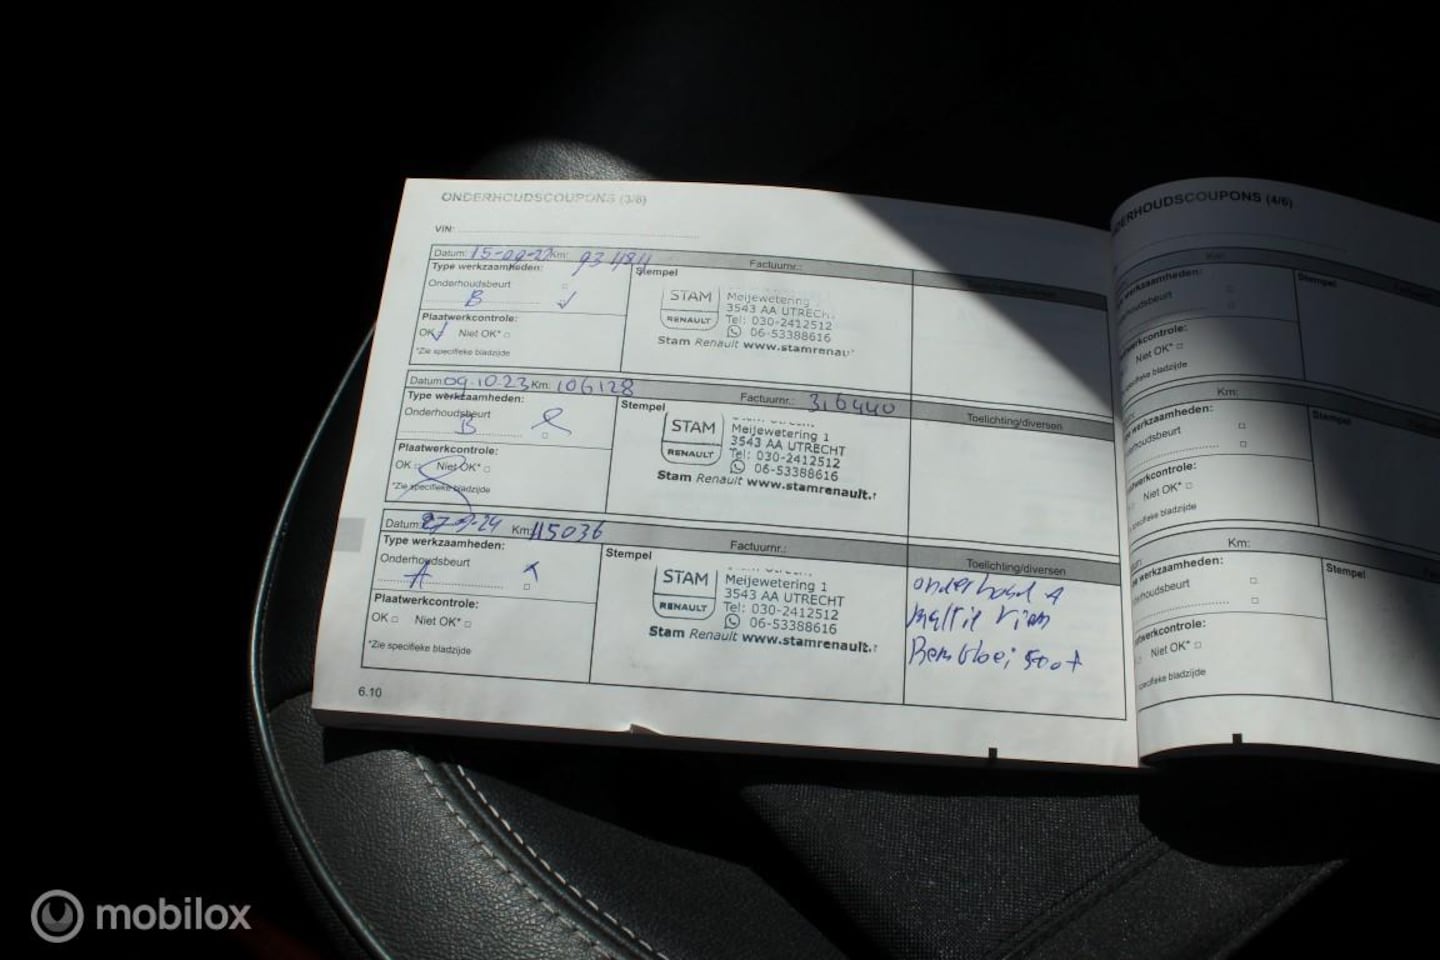 ONDERHOUDSCOUPONS (3/6)
VIN:
Datum: 15-09-22 Km: 93484 Factuurnr.:
Type werkzaamheden:
Onderhoudsbeurt
B
Plaatwerkcontrole:
OK Niet OK*
*Zie specifieke bladzijde
Stempel
STAM
RENAULT
Meijewetering
3543 AA UTRECH
Tel: 030-2412512
06-53388616
Stam Renault www.stamrenau
Datum: 09.10.23 Km: 106128 Factuurnr.: 316440 Toelichting/diversen
Type werkzaamheden:
Onderhoudsbeurt
B
Plaatwerkcontrole:
OK Niet OK*
*Zie specifieke bladzijde
Stempel
STAM
RENAULT
Meijewetering 1
3543 AA UTRECHT
Tel: 030-2412512
06-53388616
Stam Renault www.stamrenault.
Datum: 27-9-24 Km: 115036 Factuurnr.: Toelichting/diversen
Type werkzaamheden:
Onderhoudsbeurt
A
Plaatwerkcontrole:
OK Niet OK*
*Zie specifieke bladzijde
Stempel
STAM
RENAULT
Meijewetering 1
3543 AA UTRECHT
Tel: 030-2412512
06-53388616
Stam Renault www.stamrenault.
onderhoud A
Multie riem
Remvloeistof
6.10
DERHOUDSCOUPONS (4/6)
Km:
werkzaamheden:
erhoudsbeurt
Stempel
werkcontrole:
Niet OK*
specifieke bladzijde
Km:
werkzaamheden:
erhoudsbeurt
Stempel
werkcontrole:
Niet OK*
specifieke bladzijde
Km:
werkzaamheden:
derhoudsbeurt
Stempel
werkcontrole:
Niet OK*
specifieke bladzijde
mobilox